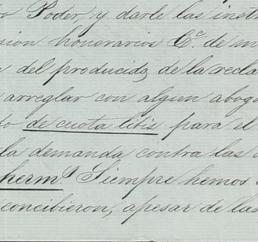 Poder, y darle las inst
sion honorarios &c. de m
del producido de la recla
arreglar con algun abog
de cuota litis para el
la demanda contra las
herm.s Siempre hemos
concibieron, apesar de las